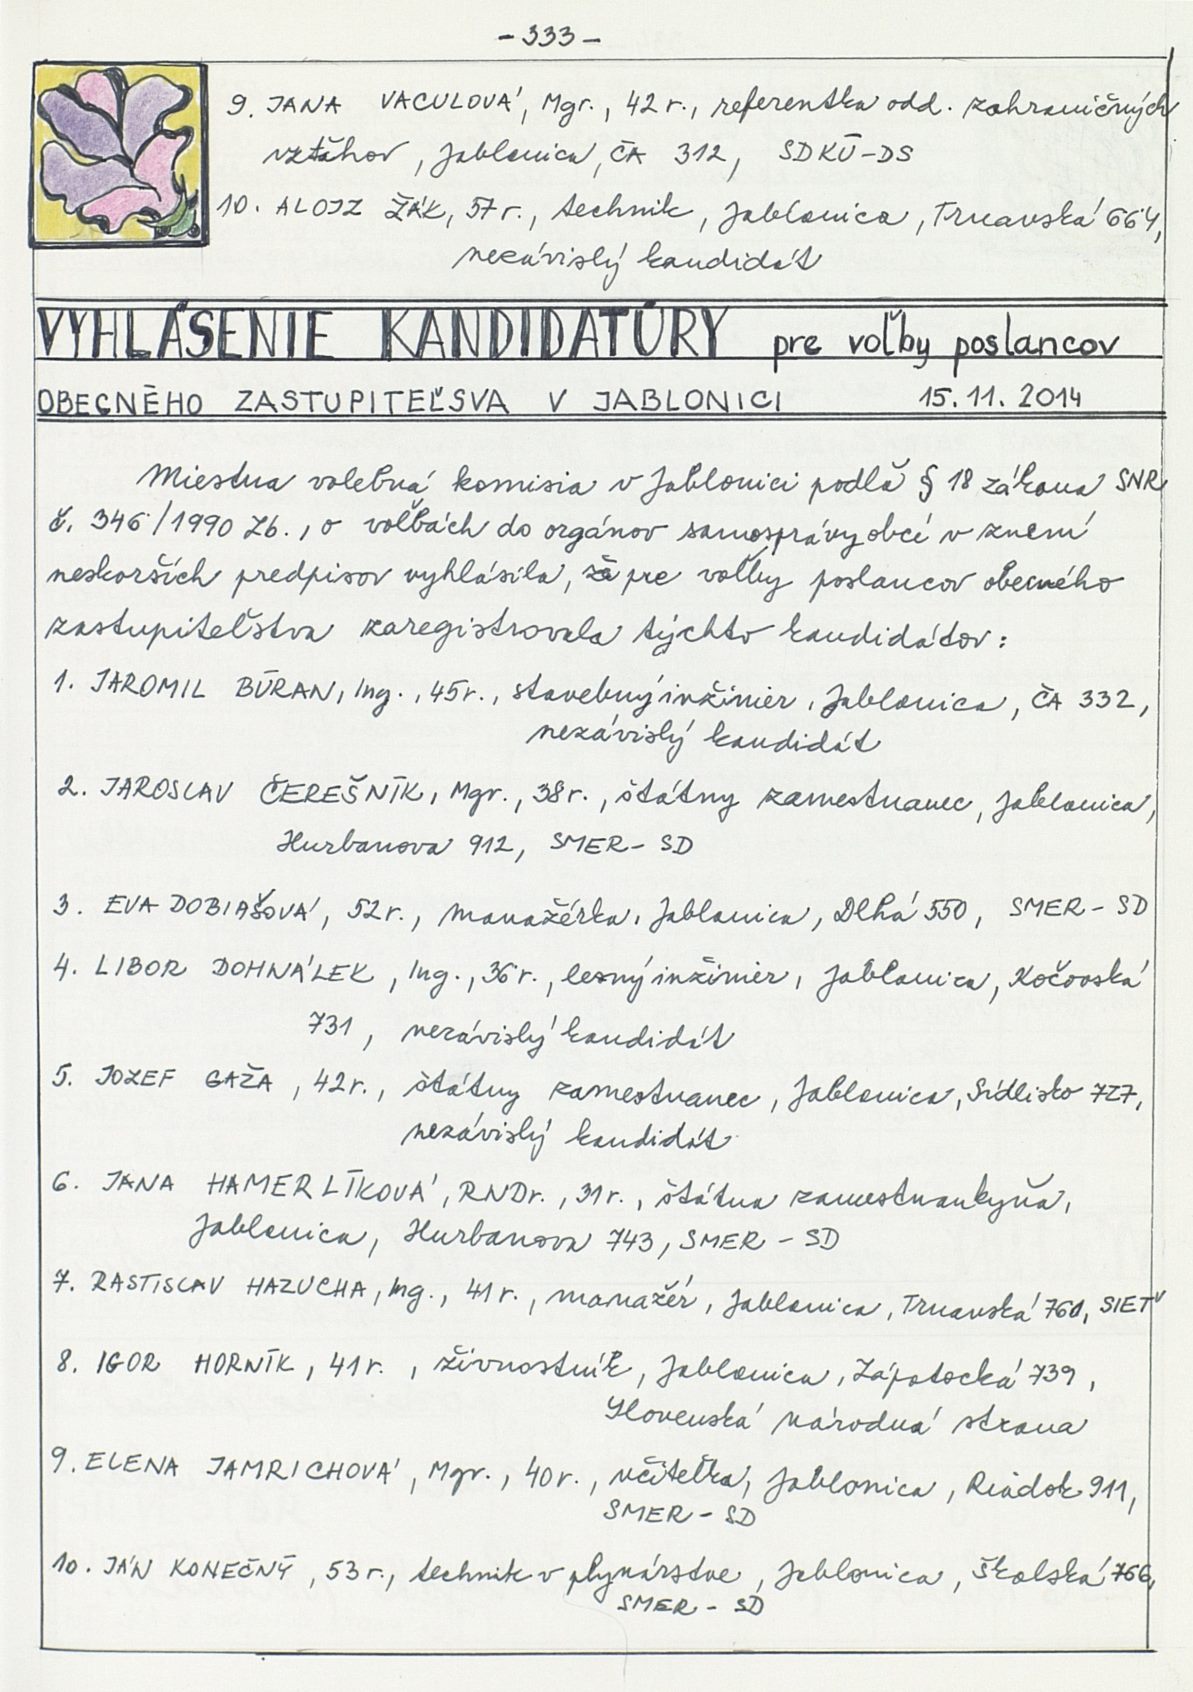 - 333 -
9. JANA VACULOVÁ, Mgr., 42 r., referentka odd. zahraničných
vzťahov, Jablonica, ČA 312, SDKÚ-DS
10. ALOJZ ŽÁK, 57 r., technik, Jablonica, Trnavská 664,
nezávislý kandidát
VYHLÁSENIE KANDIDATÚRY pre voľby poslancov
OBECNÉHO ZASTUPITEĽSVA V JABLONICI 15.11.2014
Miestna volebná komisia v Jablonici podľa § 18 zákona SNR
č. 346/1990 Zb., o voľbách do orgánov samosprávy obcí v znení
neskorších predpisov vyhlásila, že pre voľby poslancov obecného
zastupiteľstva zaregistrovala týchto kandidátov:
1. JAROMIL BÚRAN, Ing., 45 r., stavebný inžinier, Jablonica, ČA 332,
nezávislý kandidát
2. JAROSLAV ČEREŠNÍK, Mgr., 38 r., štátny zamestnanec, Jablonica,
Hurbanova 912, SMER - SD
3. EVA DOBIAŠOVÁ, 52 r., manažérka, Jablonica, Dlhá 550, SMER - SD
4. LIBOR DOHNÁLEK, Ing., 36 r., lesný inžinier, Jablonica, Kočovská
731, nezávislý kandidát
5. JOZEF GAŽA, 42 r., štátny zamestnanec, Jablonica, Sídlisko 727,
nezávislý kandidát
6. JANA HAMERLÍKOVÁ, RNDr., 31 r., štátna zamestnankyňa,
Jablonica, Hurbanova 743, SMER - SD
7. RASTISLAV HAZUCHA, Ing., 41 r., manažér, Jablonica, Trnavská 760, SIEŤ
8. IGOR HORNÍK, 41 r., živnostník, Jablonica, Zápotocká 739,
Slovenská národná strana
9. ELENA JAMRICHOVÁ, Mgr., 40 r., učiteľka, Jablonica, Riadok 911,
SMER - SD
10. JÁN KONEČNÝ, 53 r., technik v plynárstve, Jablonica, Školská 766,
SMER - SD